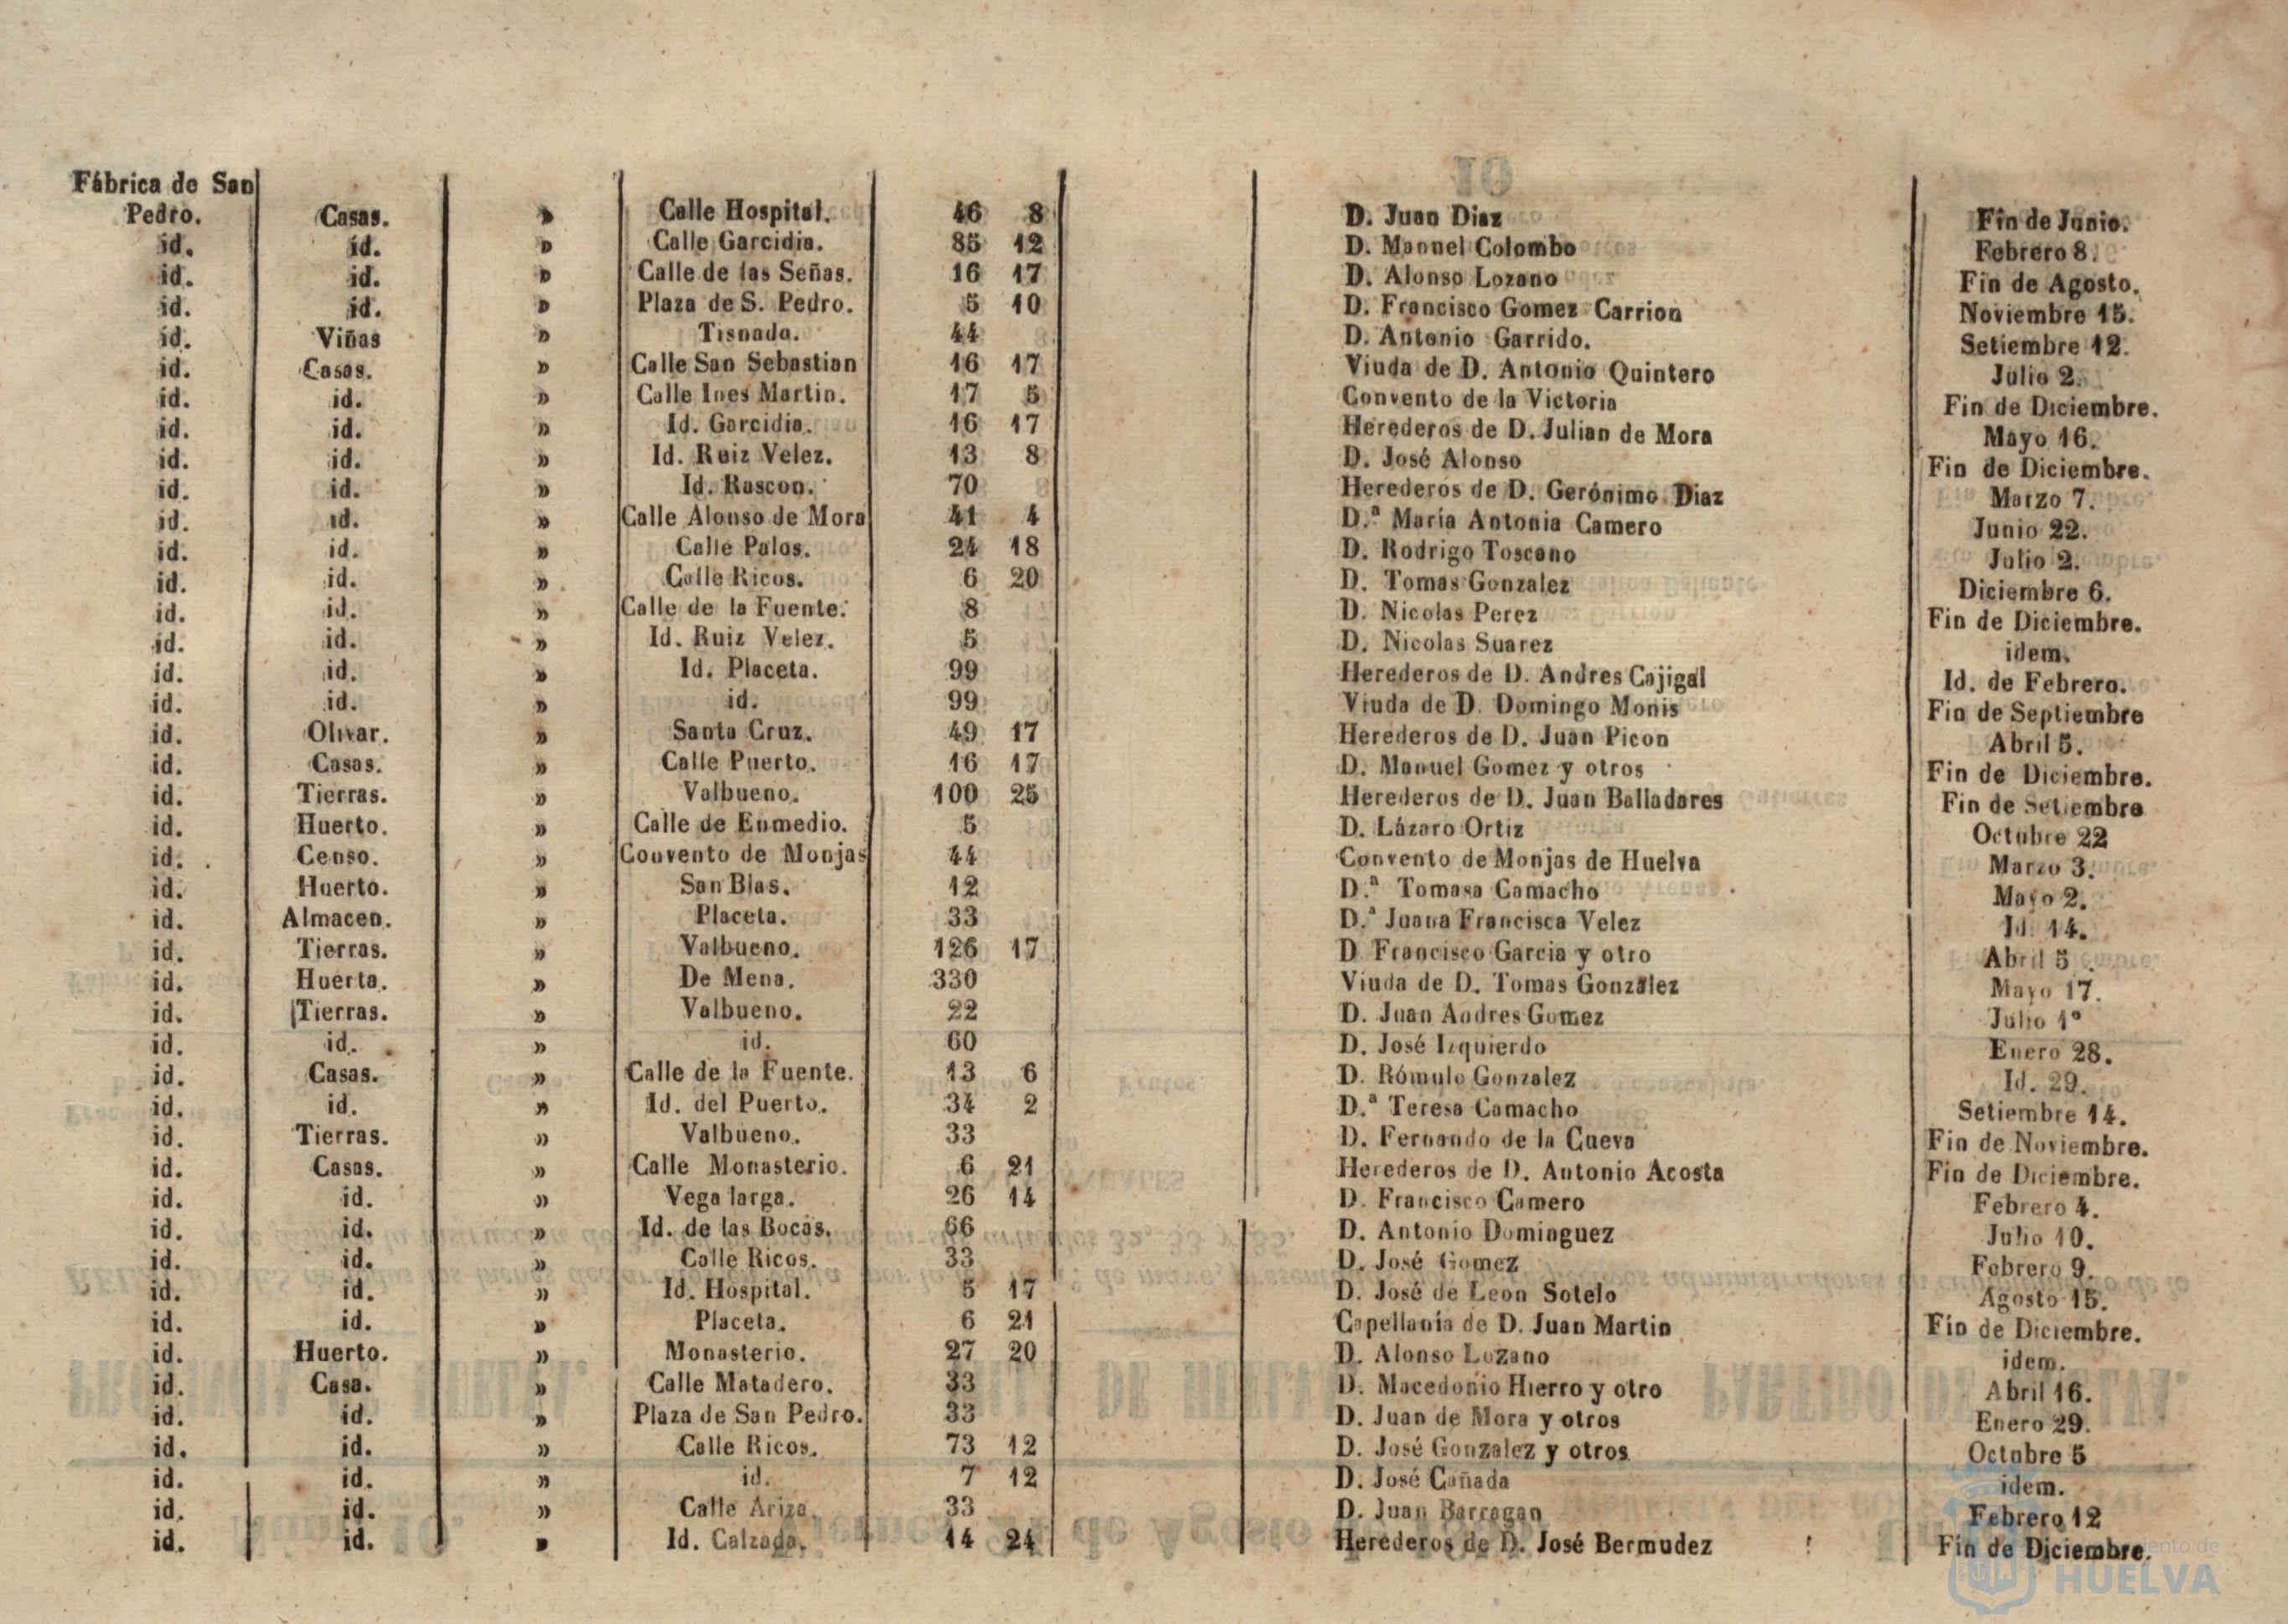 Fábrica de San
Pedro. Casas. » Calle Hospital. 46 8 D. Juan Diaz Fin de Junio.
id. id. » Calle Garcidia. 85 12 D. Manuel Colombo Febrero 8.
id. id. » Calle de las Señas. 16 17 D. Alonso Lozano Fin de Agosto.
id. id. » Plaza de S. Pedro. 5 10 D. Francisco Gomez Carrion Noviembre 15.
id. Viñas » Tisnada. 44 D. Antonio Garrido. Setiembre 12.
id. Casas. » Calle San Sebastian 16 17 Viuda de D. Antonio Quintero Julio 2.
id. id. » Calle Ines Martin. 17 5 Convento de la Victoria Fin de Diciembre.
id. id. » Id. Garcidia. 16 17 Herederos de D. Julian de Mora Mayo 16.
id. id. » Id. Ruiz Velez. 13 8 D. José Alonso Fin de Diciembre.
id. id. » Id. Rascon. 70 Herederos de D. Gerónimo Diaz Marzo 7.
id. id. » Calle Alonso de Mora 41 4 D.ª María Antonia Camero Junio 22.
id. id. » Calle Palos. 24 18 D. Rodrigo Toscano Julio 2.
id. id. » Calle Ricos. 6 20 D. Tomas Gonzalez Diciembre 6.
id. id. » Calle de la Fuente. 8 D. Nicolas Perez Fin de Diciembre.
id. id. » Id. Ruiz Velez. 5 D. Nicolas Suarez idem.
id. id. » Id. Placeta. 99 Herederos de D. Andres Cajigal Id. de Febrero.
id. id. » id. 99 Viuda de D. Domingo Monis Fin de Septiembre
id. Olivar. » Santa Cruz. 49 17 Herederos de D. Juan Picon Abril 5.
id. Casas. » Calle Puerto. 16 17 D. Manuel Gomez y otros Fin de Diciembre.
id. Tierras. » Valbueno. 100 25 Herederos de D. Juan Balladares Fin de Setiembre
id. Huerto. » Calle de Enmedio. 5 D. Lázaro Ortiz Octubre 22
id. Censo. » Couvento de Monjas 44 Convento de Monjas de Huelva Marzo 3.
id. Huerto. » San Blas. 12 D.ª Tomasa Camacho Mayo 2.
id. Almacen. » Placeta. 33 D.ª Juana Francisca Velez Id. 14.
id. Tierras. » Valbueno. 126 17 D Francisco Garcia y otro Abril 5.
id. Huerta. » De Mena. 330 Viuda de D. Tomas Gonzalez Mayo 17.
id. Tierras. » Valbueno. 22 D. Juan Andres Gomez Julio 1º
id. id. » id. 60 D. José Izquierdo Enero 28.
id. Casas. » Calle de la Fuente. 13 6 D. Rómulo Gonzalez Id. 29.
id. id. » Id. del Puerto. 34 2 D.ª Teresa Camacho Setiembre 14.
id. Tierras. » Valbueno. 33 D. Fernando de la Cueva Fin de Noviembre.
id. Casas. » Calle Monasterio. 6 21 Herederos de D. Antonio Acosta Fin de Diciembre.
id. id. » Vega larga. 26 14 D. Francisco Camero Febrero 4.
id. id. » Id. de las Bocas. 66 D. Antonio Dominguez Julio 10.
id. id. » Calle Ricos. 33 D. José Gomez Febrero 9.
id. id. » Id. Hospital. 5 17 D. José de Leon Sotelo Agosto 15.
id. id. » Placeta. 6 21 Capellanía de D. Juan Martin Fin de Diciembre.
id. Huerto. » Monasterio. 27 20 D. Alonso Lozano idem.
id. Casa. » Calle Matadero. 33 D. Macedonio Hierro y otro Abril 16.
id. id. » Plaza de San Pedro. 33 D. Juan de Mora y otros Enero 29.
id. id. » Calle Ricos. 73 12 D. José Gonzalez y otros Octubre 5
id. id. » id. 7 12 D. José Cañada idem.
id. id. » Calle Ariza. 33 D. Juan Barragan Febrero 12
id. id. » Id. Calzada. 14 24 Herederos de D. José Bermudez Fin de Diciembre.
HUELVA